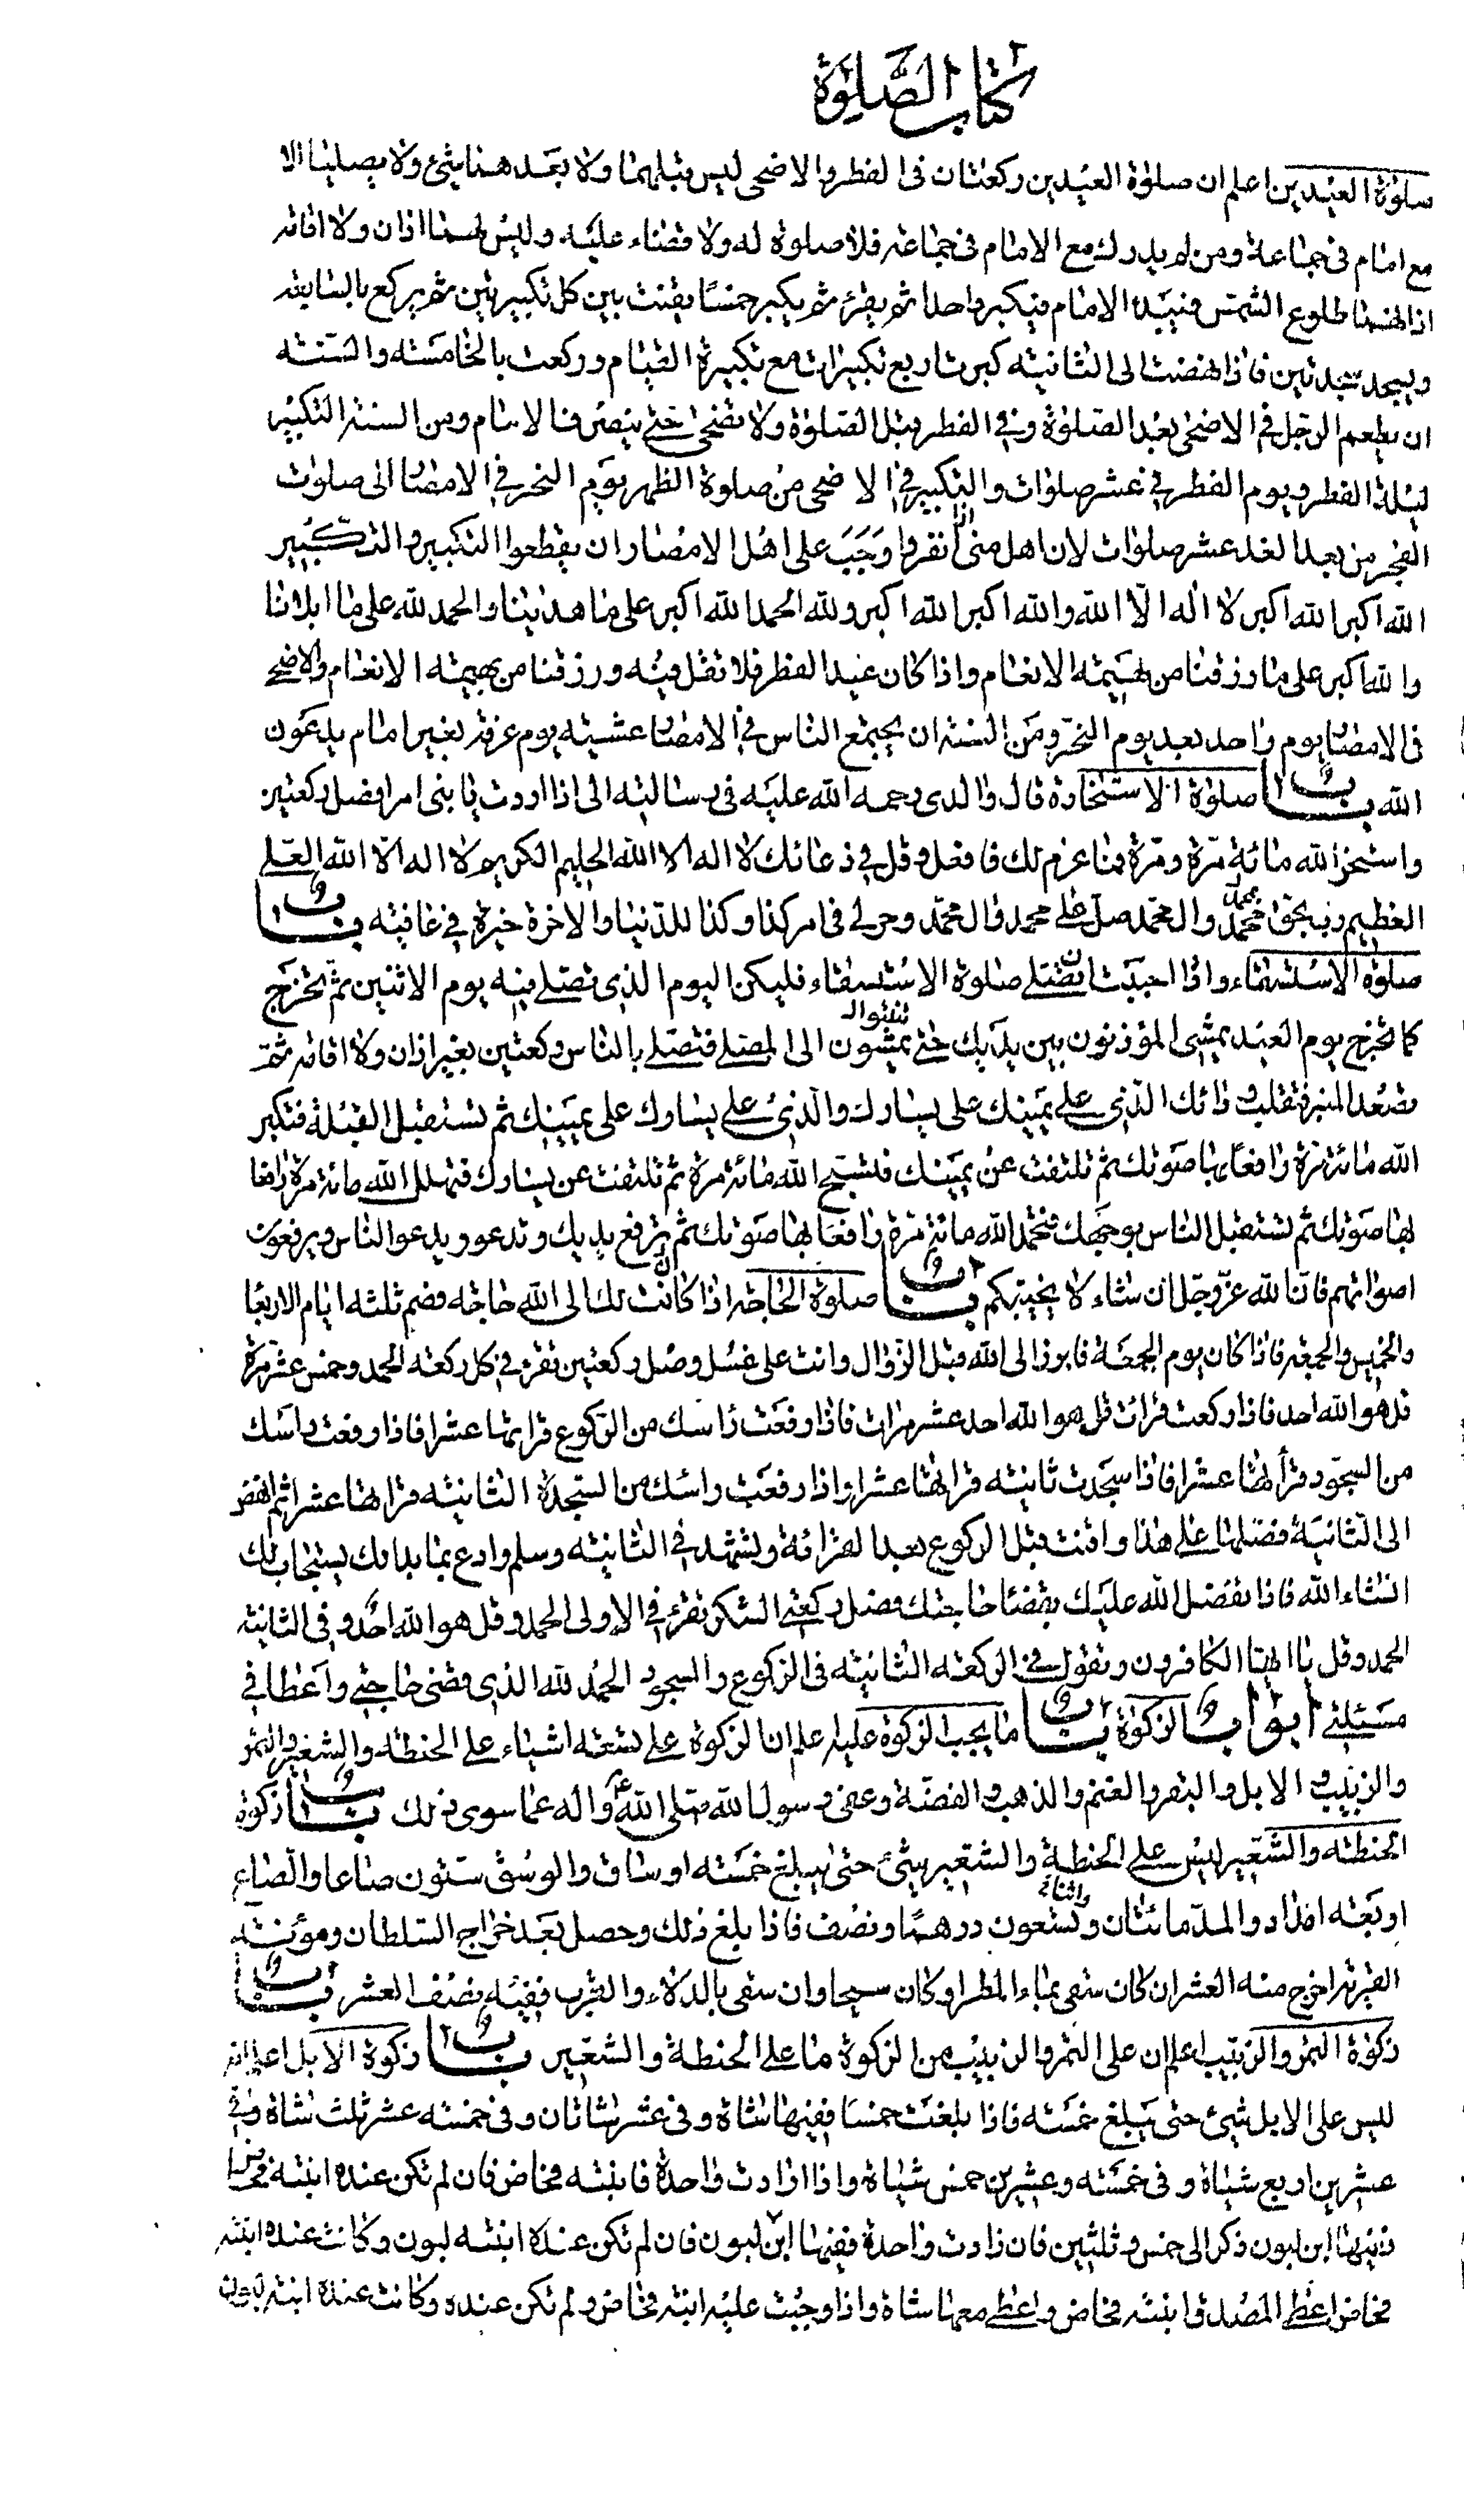 كتاب الصلوة
صلوة العيدين اعلم ان صلوة العيدين ركعتان فى الفطر والاضحى ليس قبلهما ولا بعدهما شئ ولا يصليا الا
مع امام فى جماعة ومن لم يدرك مع الامام فى جماعة فلا صلوة له ولا قضاء عليه وليس لهما اذان ولا اقامة
اذانهما طلوع الشمس فيبدء الامام فيكبر واحدا ثم يقرء ثم يكبر خمسا يقنت بين كل تكبيرتين ثم يركع بالسابعة
ويسجد سجدتين فاذا نهضت الى الثانية كبرت اربع تكبيرات مع تكبيرة القيام وركعت بالخامسة والسنة
ان يطعم الرجل فى الاضحى بعد الصلوة وفى الفطر قبل الصلوة ولا يضحى حتى ينصرف الامام ومن السنة التكبير
ليلة الفطر ويوم الفطر فى عشر صلوات والتكبير فى الاضحى من صلوة الظهر يوم النحر فى الامصار الى صلوت
الفجر من بعد الغد عشر صلوات لان اهل منى اذا نفروا وجب على اهل الامصار ان يقطعوا التكبير والتكبير
الله اكبر الله اكبر لا اله الا الله والله اكبر الله اكبر ولله الحمد الله اكبر على ما هدينا والحمد لله على ما ابلانا
والله اكبر على ما رزقنا من بهيمة الانعام واذا كان عيد الفطر فلا تقل فيه ورزقنا من بهيمة الانعام والاضحى
فى الامصار يوم واحد بعد يوم النحر ومن السنة ان يجتمع الناس فى الامصار عشية يوم عرفة بغير امام يدعون
الله باب صلوة الاستخارة قال والدى رحمه الله عليه فى رسالته الى اذا اردت يا بنى امرا فصل ركعتين
واستخر الله مائة مرة ومرة فما عزم لك فافعل وقل فى دعائك لا اله الا الله الحليم الكريم لا اله الا الله العلى
العظيم رب بحق محمد محمد وال محمد صل على محمد وال محمد وخر لى فى امر كذا وكذا للدنيا والاخرة خيرة فى عافية باب
صلوة الاستسقاء واذا احببت ان تصلى صلوة الاستسقاء فليكن اليوم الذى تصلى فيه يوم الاثنين ثم تخرج
كما تخرج يوم العيد يمشى المؤذنون بين يديك حتى يمشون الى المصلى فتصلى بالناس ركعتين بغير اذان ولا اقامة ثم
تصعد المنبر فتقلب ردائك الذى على يمينك على يسارك والذى على يسارك على يمينك ثم تستقبل القبلة فتكبر
الله مائة مرة رافعا بها صوتك ثم تلتفت عن يمينك فتسبح الله مائة مرة ثم تلتفت عن يسارك فتهلل الله مائة مرة رافعا
بها صوتك ثم تستقبل الناس بوجهك فتحمد الله مائة مرة رافعا بها صوتك ثم ترفع يديك وتدعو ويدعو الناس ويرفعون
اصواتهم فان الله عز وجل ان شاء لا يخيبكم باب صلوة الحاجة اذا كانت لك الى الله حاجة فصم ثلثة ايام الاربعا
والخميس والجمعة فاذا كان يوم الجمعة فابرز الى الله قبل الزوال وانت على غسل وصل ركعتين تقرء فى كل ركعة الحمد وخمس عشر مرة
قل هو الله احد فاذا ركعت قرات قل هو الله احد عشر مرات فاذا رفعت راسك من الركوع قراتها عشرا فاذا رفعت راسك
من السجود قرأتها عشرا فاذا سجدت ثانية قراتها عشرا واذا رفعت راسك من السجدة الثانية قراتها عشرا ثم انهض
الى الثانية فصلها على هذا واقنت قبل الركوع بعد القرائة وتشهد فى الثانية وسلم وادع بما بدا لك يستجاب لك
انشاء الله فاذا تفضل الله عليك بقضاء حاجتك فصل ركعتى الشكر تقرء فى الاولى الحمد وقل هو الله احد وفى الثانية
الحمد وقل يا ايها الكافرون وتقول فى الركعة الثانية فى الركوع والسجود الحمد لله الذى قضى حاجتى واعطانى
مسئلتى ابواب الزكوة باب ما يجب الزكوة عليه اعلم ان الزكوة على تسعة اشياء على الحنطة والشعير والتمر
والزبيب والابل والبقر والغنم والذهب والفضة وعفى رسول الله صلى الله عليه واله عما سوى ذلك باب زكوة
الحنطة والشعير ليس على الحنطة والشعير شئ حتى يبلغ خمسة اوساق والوسق ستون صاعا والصاع
اربعة امداد والمد مائتان واثنان وتسعون درهما ونصف فاذا بلغ ذلك وحصل بعد خراج السلطان ومؤنة
القرية اخرج منه العشر ان كان سقى بماء المطر او كان سيحا وان سقى بالدلاء والقرب ففيه نصف العشر باب
زكوة التمر والزبيب اعلم ان على التمر والزبيب من الزكوة ما على الحنطة والشعير باب زكوة الابل اعلم انه
ليس على الابل شيئ حتى يبلغ خمسة فاذا بلغت خمسا ففيها شاة وفى عشر شاتان وفى خمسة عشر ثلث شاة وفى
عشرين اربع شياة وفى خمسة وعشرين خمس شياة واذا زادت واحدة فابنته مخاض فان لم تكن عنده ابنته مخاض
ففيها ابن لبون ذكر الى خمس وثلثين فان زادت واحدة ففيها ابن لبون فان لم تكن عنده ابنته لبون وكانت عنده ابنته
مخاض اعطى المصدق ابنته مخاض واعطى معها شاة واذا وجبت عليه ابنته مخاض ولم تكن عنده وكانت عنده ابنته لبون